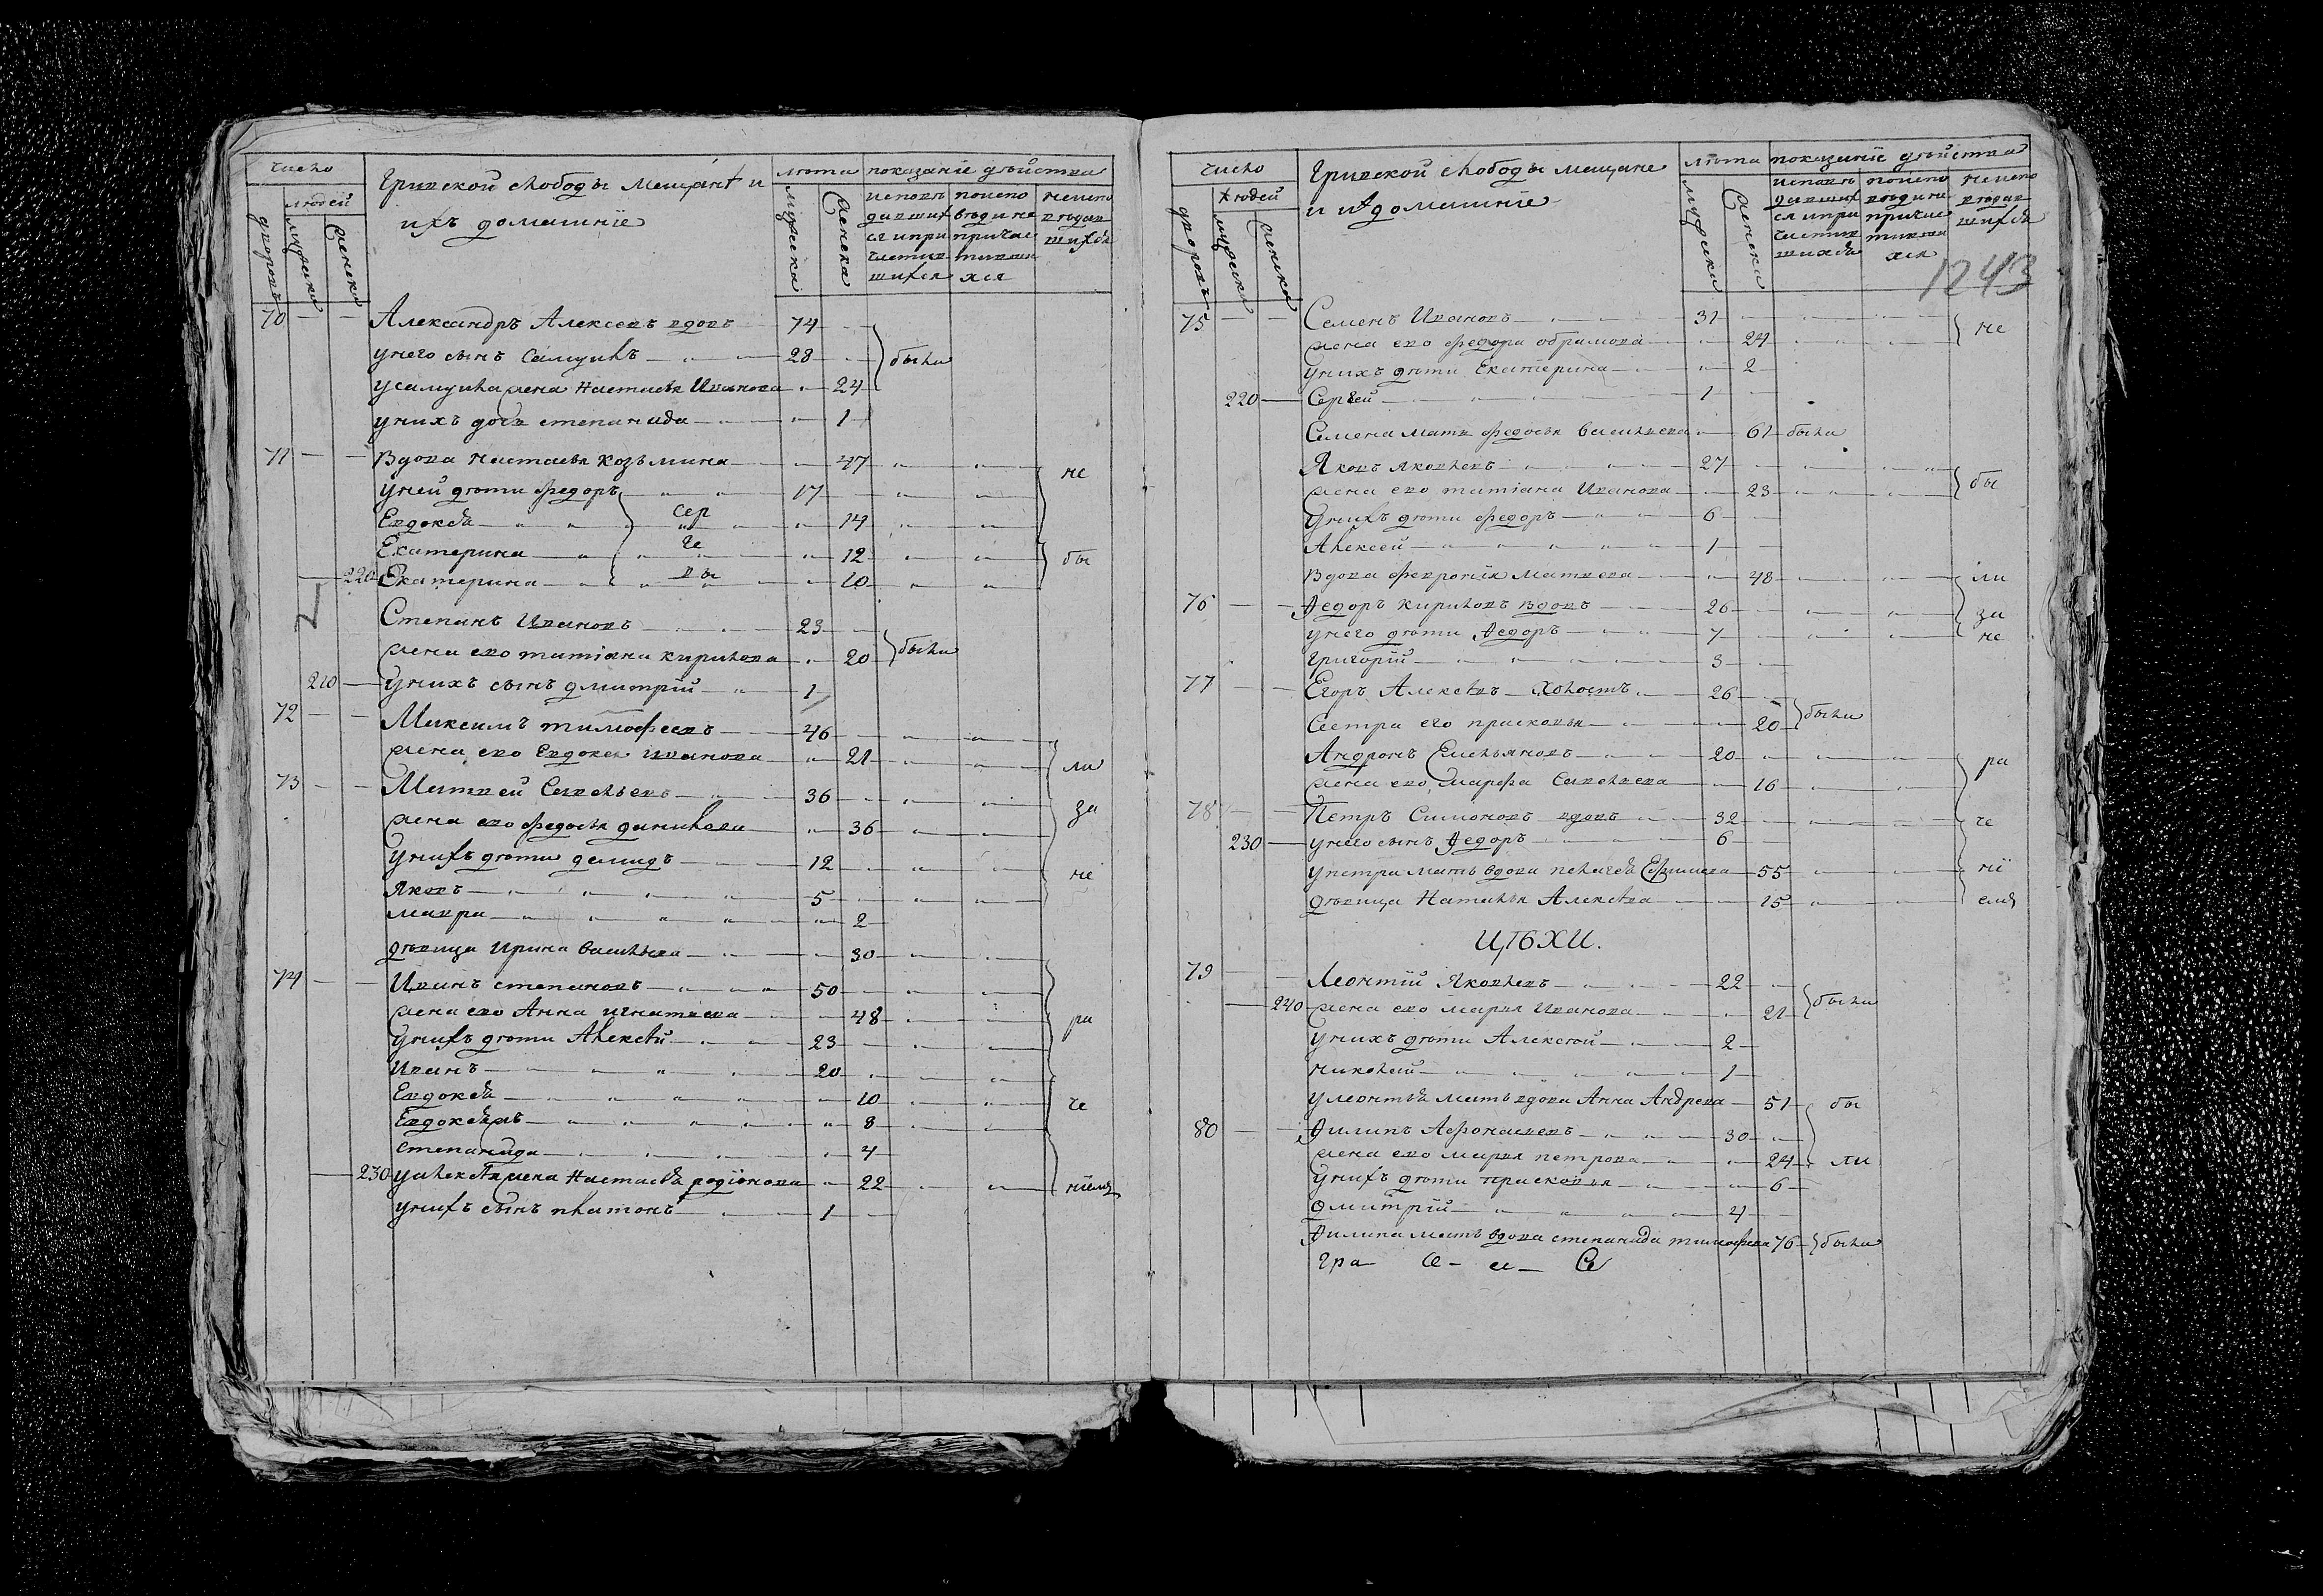 число
Гривской слободы мещанѣ и
ихъ домашнїе
лѣта
показанїе дѣйства
людей
дворовъ
мужеска
женска
мужеска
женска
исповѣ
давших
ся и при
частив
шихся
поиспо
вѣди не
причас
тивши
хся
неиспо
вѣдав
шихся
70 Александръ Алексеевъ вдовъ 74
у него сынъ Самуилъ 28 были
у самуила жена Настасья Иванова 24
у нихъ дочь степанида 1
71 Вдова настасья козьмина 47 не
у ней дѣти федоръ 17
Евдокея сер 14
Екатерина че 12 бы
220 Екатерина вы 10
Степанъ Ивановъ 23
жена ево татиана кирилова 20 были
210 у нихъ сынъ дмитрїй 1
72 Максимъ тимофеевъ 46
жена ево Евдокея иванова 21 ли
73 Матвей Савельевъ 36 за
жена ево федосья данилова 36
у нихъ дѣти демидъ 12 не
яковъ 5
мавра 2
дѣвица ирина васильева 30
74 Иванъ степановъ 50
жена ево Анна игнатиева 48 ра
у нихъ дѣти Алексѣй 23
иванъ 20
Евдокея 10 че
Евдокея жъ 8
степанида 4
230 у алексѣя жена Настасья родїонова 22 нїемъ
у нихъ сынъ платонъ 1
число
Гривской слободы мещане
и их домашнїе
лѣта
показанїе дѣйства
людей
дворовъ
мужеска
женска
мужеска
женска
исповѣ
давших
ся и при
частив
шихся
поиспо
вѣди не
причас
тивши
хся
неиспо
вѣдав
шихся
1243
75 Семенъ Ивановъ 31 не
жена ево федора обрамова 24
у нихъ дѣти Екатерина 2
220 Сергей 1
Семена мать федосья васильева 61 были
Яковъ яковлевъ 27
жена ево татїана Иванова 23 бы
у нихъ дѣти федоръ 6
Алексей 1
Вдова феврония матвева 48 ли
76 Федоръ кириловъ вдовъ 26 за
у него дѣти Федоръ 7 не
григорїй 3
77 Егоръ Алексѣвъ холостъ 26
Сестра его прасковья 20 были
Андронъ Емельяновъ 20 ра
жена ево марфа Савельева 16
78 Петръ Симоновъ вдовъ 32 че
230 у него сынъ Федоръ 6
у петра мать вдова пелагея Ефимова 55 нї
дѣвица Наталья Алексѣва 15 емъ
ЦѢХИ.
79 Леонтїй Яковлевъ 22
240 жена ево марья Иванова 21 были
у нихъ дѣти Алексѣй 2
николай 1
у леонтья мать вдова Анна Андрева 51 бы
80 Филипъ Афонасьевъ 30
жена ево марья петрова 24 ли
у нихъ дѣти прасковья 6
дмитрїй 4
Филипа мать вдова степанида тимофева 76 были